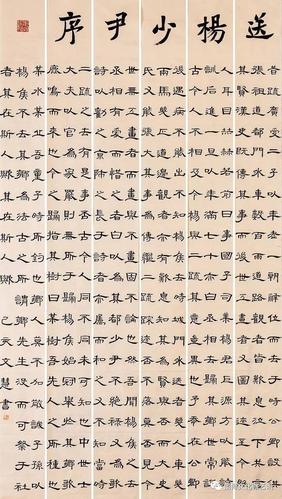 送楊少尹序
昔疏廣受二子以年老一朝辭位而去于時公卿設供
張祖道都門外車數百兩道路觀者多歎息泣下共言
其賢漢史既傳其事而後世工畫者又圖其跡至今照
人耳目赫赫若前日事國子司業楊君巨源方以能詩
訓後進一旦以年滿七十亦白丞相去歸其鄉世常說
古今人不相及今楊與二疏其意豈異也予忝在公卿
後遇病不能出不知楊侯去時城門外送者幾人車幾
兩馬幾匹道邊觀者亦有歎息知其為賢以否而太史
氏又能張大其事為傳繼二疏蹤跡否不落莫否見今
世無工畫者而畫與不畫固不論也然吾聞楊侯之去
丞相有愛而惜之者白以為其都少尹不絕其祿又為歌
詩以勸之京師之長於詩者亦屬而和之又不知當時
二疏之去有是事否古今人同不同未可知也中世士
大夫以官為家罷則無所於歸楊侯始冠舉於其鄉歌
鹿鳴而來也今之歸指其樹曰某樹吾先人之所種也
某水某丘吾童子時所釣遊也鄉人莫不加敬誡子孫以
楊侯不去其鄉為法古之所謂鄉先生沒而可祭于社
者其在斯人歟其在斯人歟 己亥文慧書